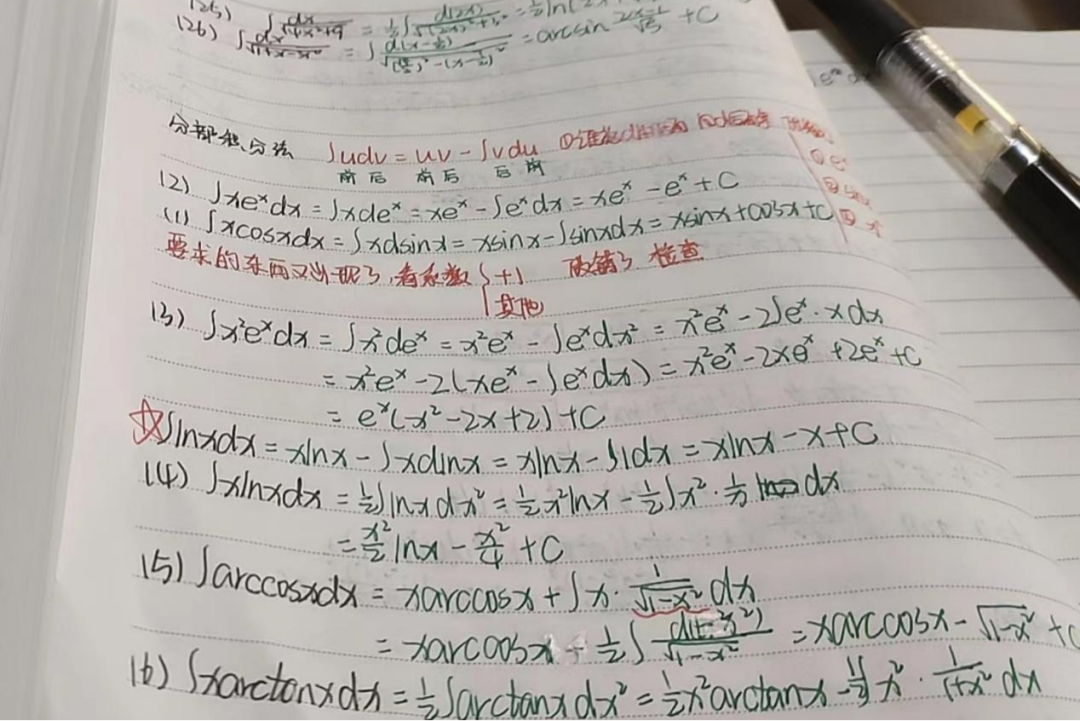 (25) ∫dx/√(4x²+9) = ½∫d(2x)/√((2x)²+3²) = ½ln(2x
(26) ∫dx/√(1+x-x²) = ∫d(x-½)/√((√5/2)²-(x-½)²) = arcsin (2x-1)/√5 + C
分部积分法 ∫udv = uv - ∫vdu
前后 前后 后前
(2) ∫xeˣdx = ∫xdeˣ = xeˣ - ∫eˣdx = xeˣ - eˣ + C
(1) ∫xcosxdx = ∫xdsinx = xsinx - ∫sinxdx = xsinx + cosx + C
要求的东西又出现了,看系数 { +1 改错了 检查
其他
(3) ∫x²eˣdx = ∫x²deˣ = x²eˣ - ∫eˣdx² = x²eˣ - 2∫eˣ·xdx
= x²eˣ - 2(xeˣ - ∫eˣdx) = x²eˣ - 2xeˣ + 2eˣ + C
= eˣ(x² - 2x + 2) + C
☆∫lnxdx = xlnx - ∫xdlnx = xlnx - ∫1dx = xlnx - x + C
(4) ∫xlnxdx = ½∫lnxdx² = ½x²lnx - ½∫x²·1/x dx
= x²/2 lnx - x²/4 + C
(5) ∫arccosxdx = xarccosx + ∫x·1/√(1-x²) dx
= xarccosx - ½∫d(1-x²)/√(1-x²) = xarccosx - √(1-x²) + C
(6) ∫xarctanxdx = ½∫arctanxdx² = ½x²arctanx - ½∫x²·1/(1+x²) dx